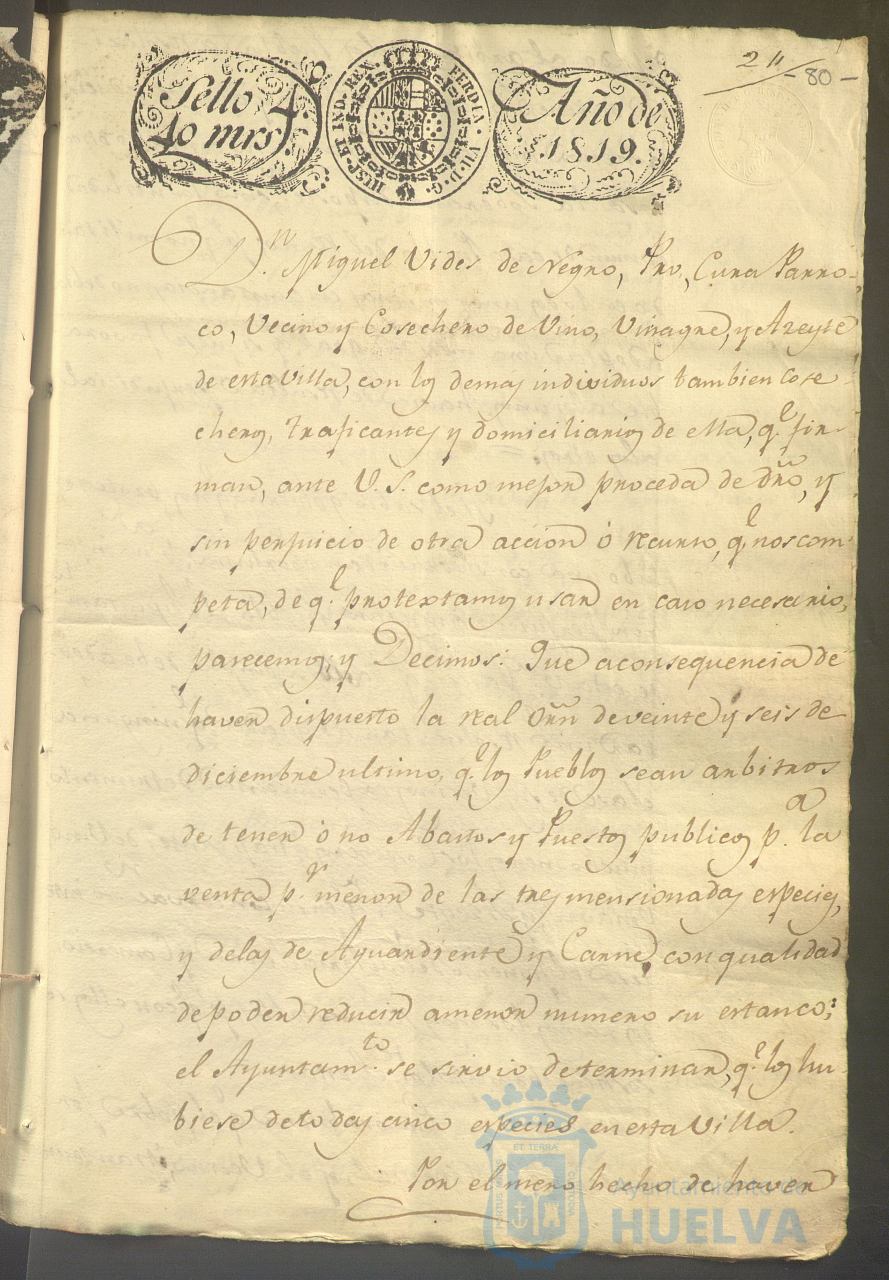 Sello 4.
40 mrs
HISP. ET IND. REX. FERDIN. VII. D. G.
Año de
1819.
2 11
- 80 -
Dn. Miguel Vides de Negro, Pro, Cura Parro-
co, Vecino y Cosechero de Vino, Vinagre, y Azeyte
de esta Villa, con los demas individuos tambien Cose-
cheros, Traficantes y domiciliarios de ella, q.e fir-
man, ante V. S. como mejor proceda de dro, y
sin perjuicio de otra accion ó recurso, q.e nos com-
peta, de q.e protextamos usar en caso necesario,
parecemos; y Decimos: Que a consequencia de
haver dispuesto la real Orn de veinte y seis de
diciembre ultimo, q.e los Pueblos sean arbitros
de tener ó no Abastos y Puestos publicos p.a la
venta p.r menor de las tres mensionadas especies,
y delas de Aguardiente y Carne, con qualidad
de poder reducir a menor numero su estanco;
el Ayuntam.to se sirvio determinar, q.e los hu-
biese de todas cinco especies en esta Villa.
Por el mero hecho de haver
ET TERRA
PORTUS MARIS
CUSTODIA
Ayuntamiento de
HUELVA